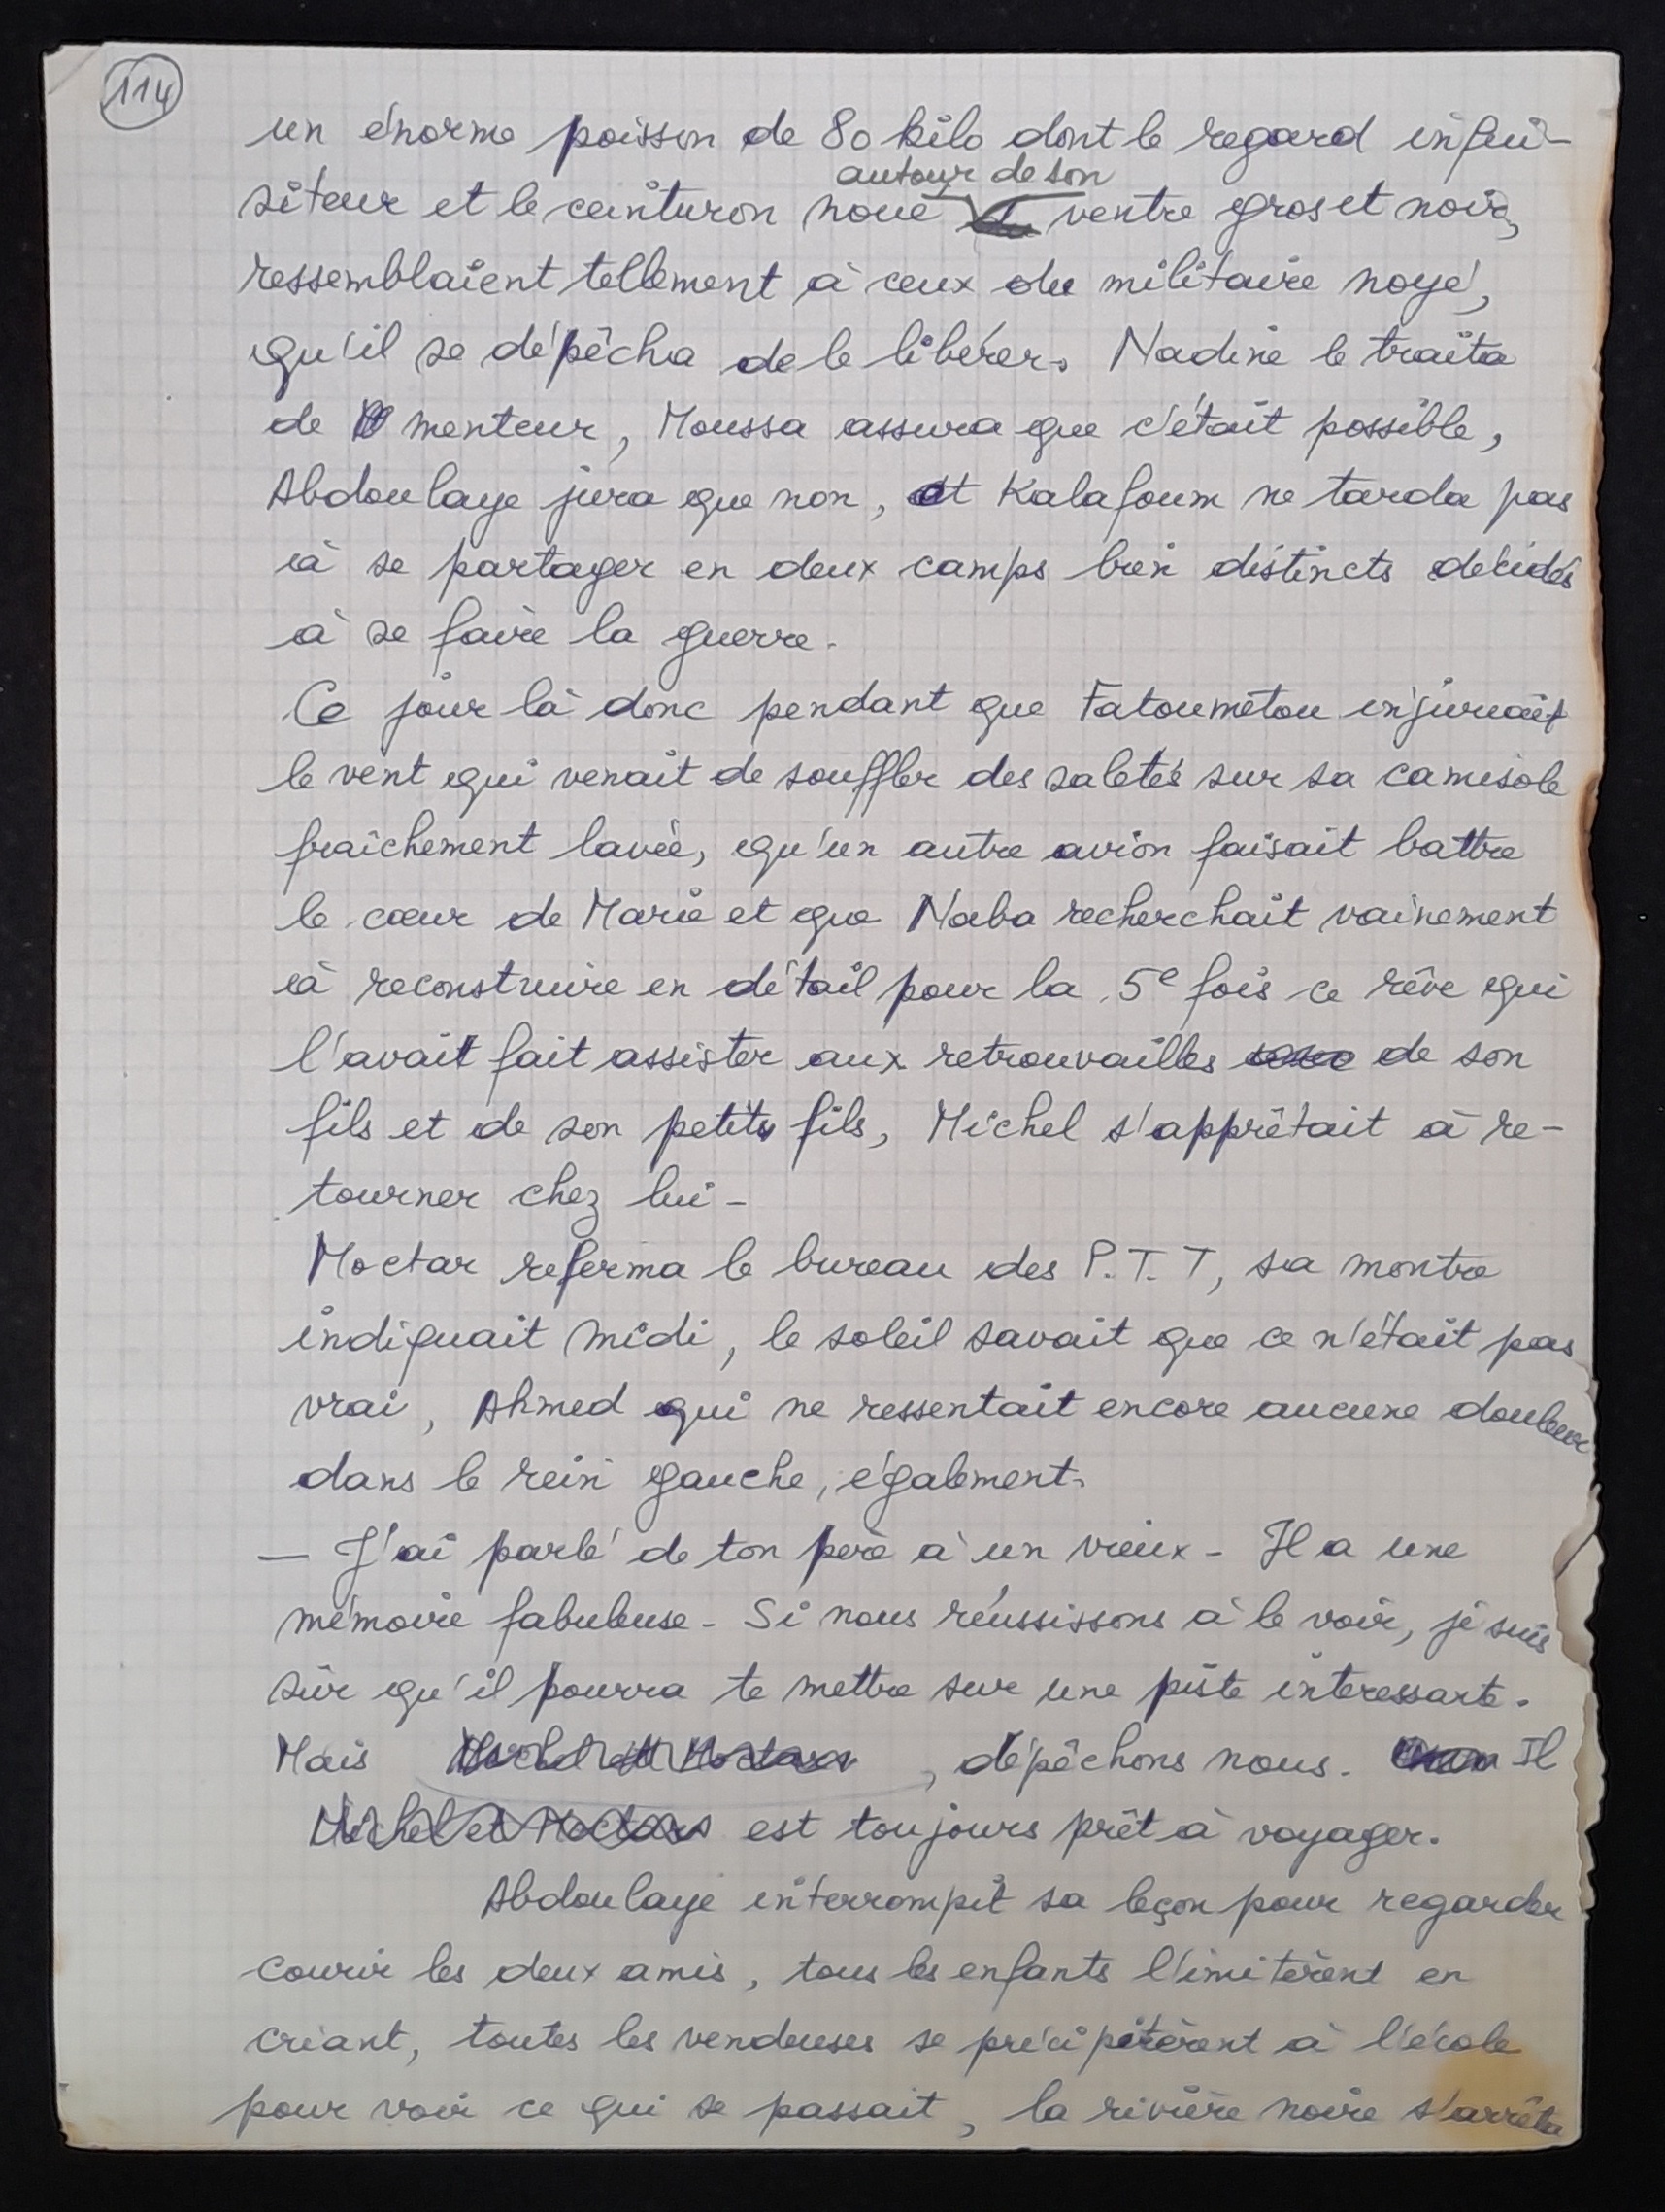 114
un énorme poisson de 80 kilo dont le regard inqui-
autour de son
siteur et le ceinturon noué ventre gros et noir,
ressemblaient tellement à ceux du militaire noyé,
qu'il se dépêcha de le libérer. Nadine le traita
de menteur, Moussa assura que c'était possible,
Abdoulaye jura que non, et Kalafoum ne tarda pas
à se partager en deux camps bien distincts décidés
à se faire la guerre.
Ce jour là donc pendant que Fatoumétou injuriait
le vent qui venait de souffler des saletés sur sa camisole
fraîchement lavée, qu'un autre avion faisait battre
le cœur de Marie et que Naba recherchait vainement
à reconstruire en détail pour la 5e fois ce rêve qui
l'avait fait assister aux retrouvailles de son
fils et de son petits fils, Michel s'apprêtait à re-
tourner chez lui -
Moctar referma le bureau des P.T.T, sa montre
indiquait midi, le soleil savait que ce n'était pas
vrai, Ahmed qui ne ressentait encore aucune douleur
dans le rein gauche, également.
— J'ai parlé de ton père à un vieux - Il a une
mémoire fabuleuse - Si nous réussissons à le voir, je suis
sûr qu'il pourra te mettre sur une piste intéressante.
Mais Michel et Moctar , dépêchons nous. Il
Michel et Moctar est toujours prêt à voyager.
Abdoulaye interrompit sa leçon pour regarder
courir les deux amis, tous les enfants l'imitèrent en
criant, toutes les vendeuses se précipitèrent à l'école
pour voir ce qui se passait, la rivière noire s'arrêta